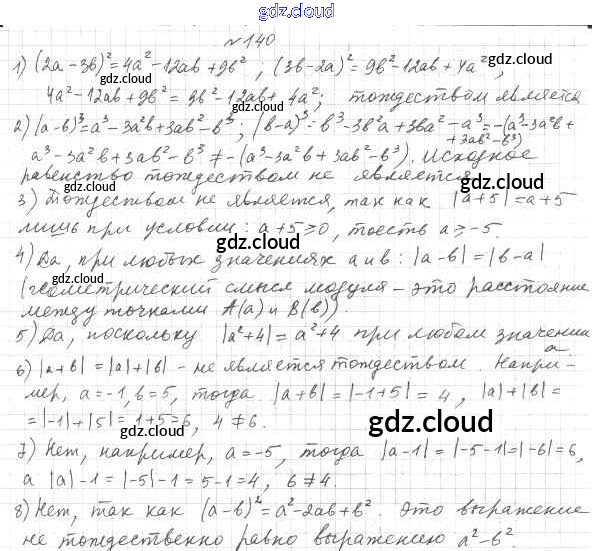 gdz.cloud
№140
1) (2a-3b)²=4a²-12ab+9b² ; (3b-2a)²=9b²-12ab+4a² ;
4a²-12ab+9b²=9b²-12ab+4a²; тождеством является
gdz.cloud
2) (a-b)³=a³-3a²b+3ab²-b³; (b-a)³=b³-3b²a+3ba²-a³=-(a³-3a²b+
+3ab²-b³)
a³-3a²b+3ab²-b³≠-(a³-3a²b+3ab²-b³). Исходное
равенство тождеством не является
gdz.cloud gdz.cloud
3) Тождеством не является, так как |a+5|=a+5
лишь при условии: a+5≥0, тоесть a≥-5.
gdz.cloud
4) Да, при любых значениях a и b: |a-b|=|b-a|
(геометрический смысл модуля - это расстояние
между точками A(a) и B(b)).
gdz.cloud
5) Да, поскольку |a²+4|=a²+4 при любом значении
a
6) |a+b|=|a|+|b| - не является тождеством. Напри-
gdz.cloud
мер, a=-1, b=5, тогда |a+b|=|-1+5|=4, |a|+|b|=
=|-1|+|5|=1+5=6, 4≠6.
gdz.cloud gdz.cloud
7) Нет, например, a=-5, тогда |a-1|=|-5-1|=|-6|=6,
а |a|-1=|-5|-1=5-1=4, 6≠4.
gdz.cloud
8) Нет, так как (a-b)²=a²-2ab+b². Это выражение
не тождественно равно выражению a²-b².
gdz.cloud